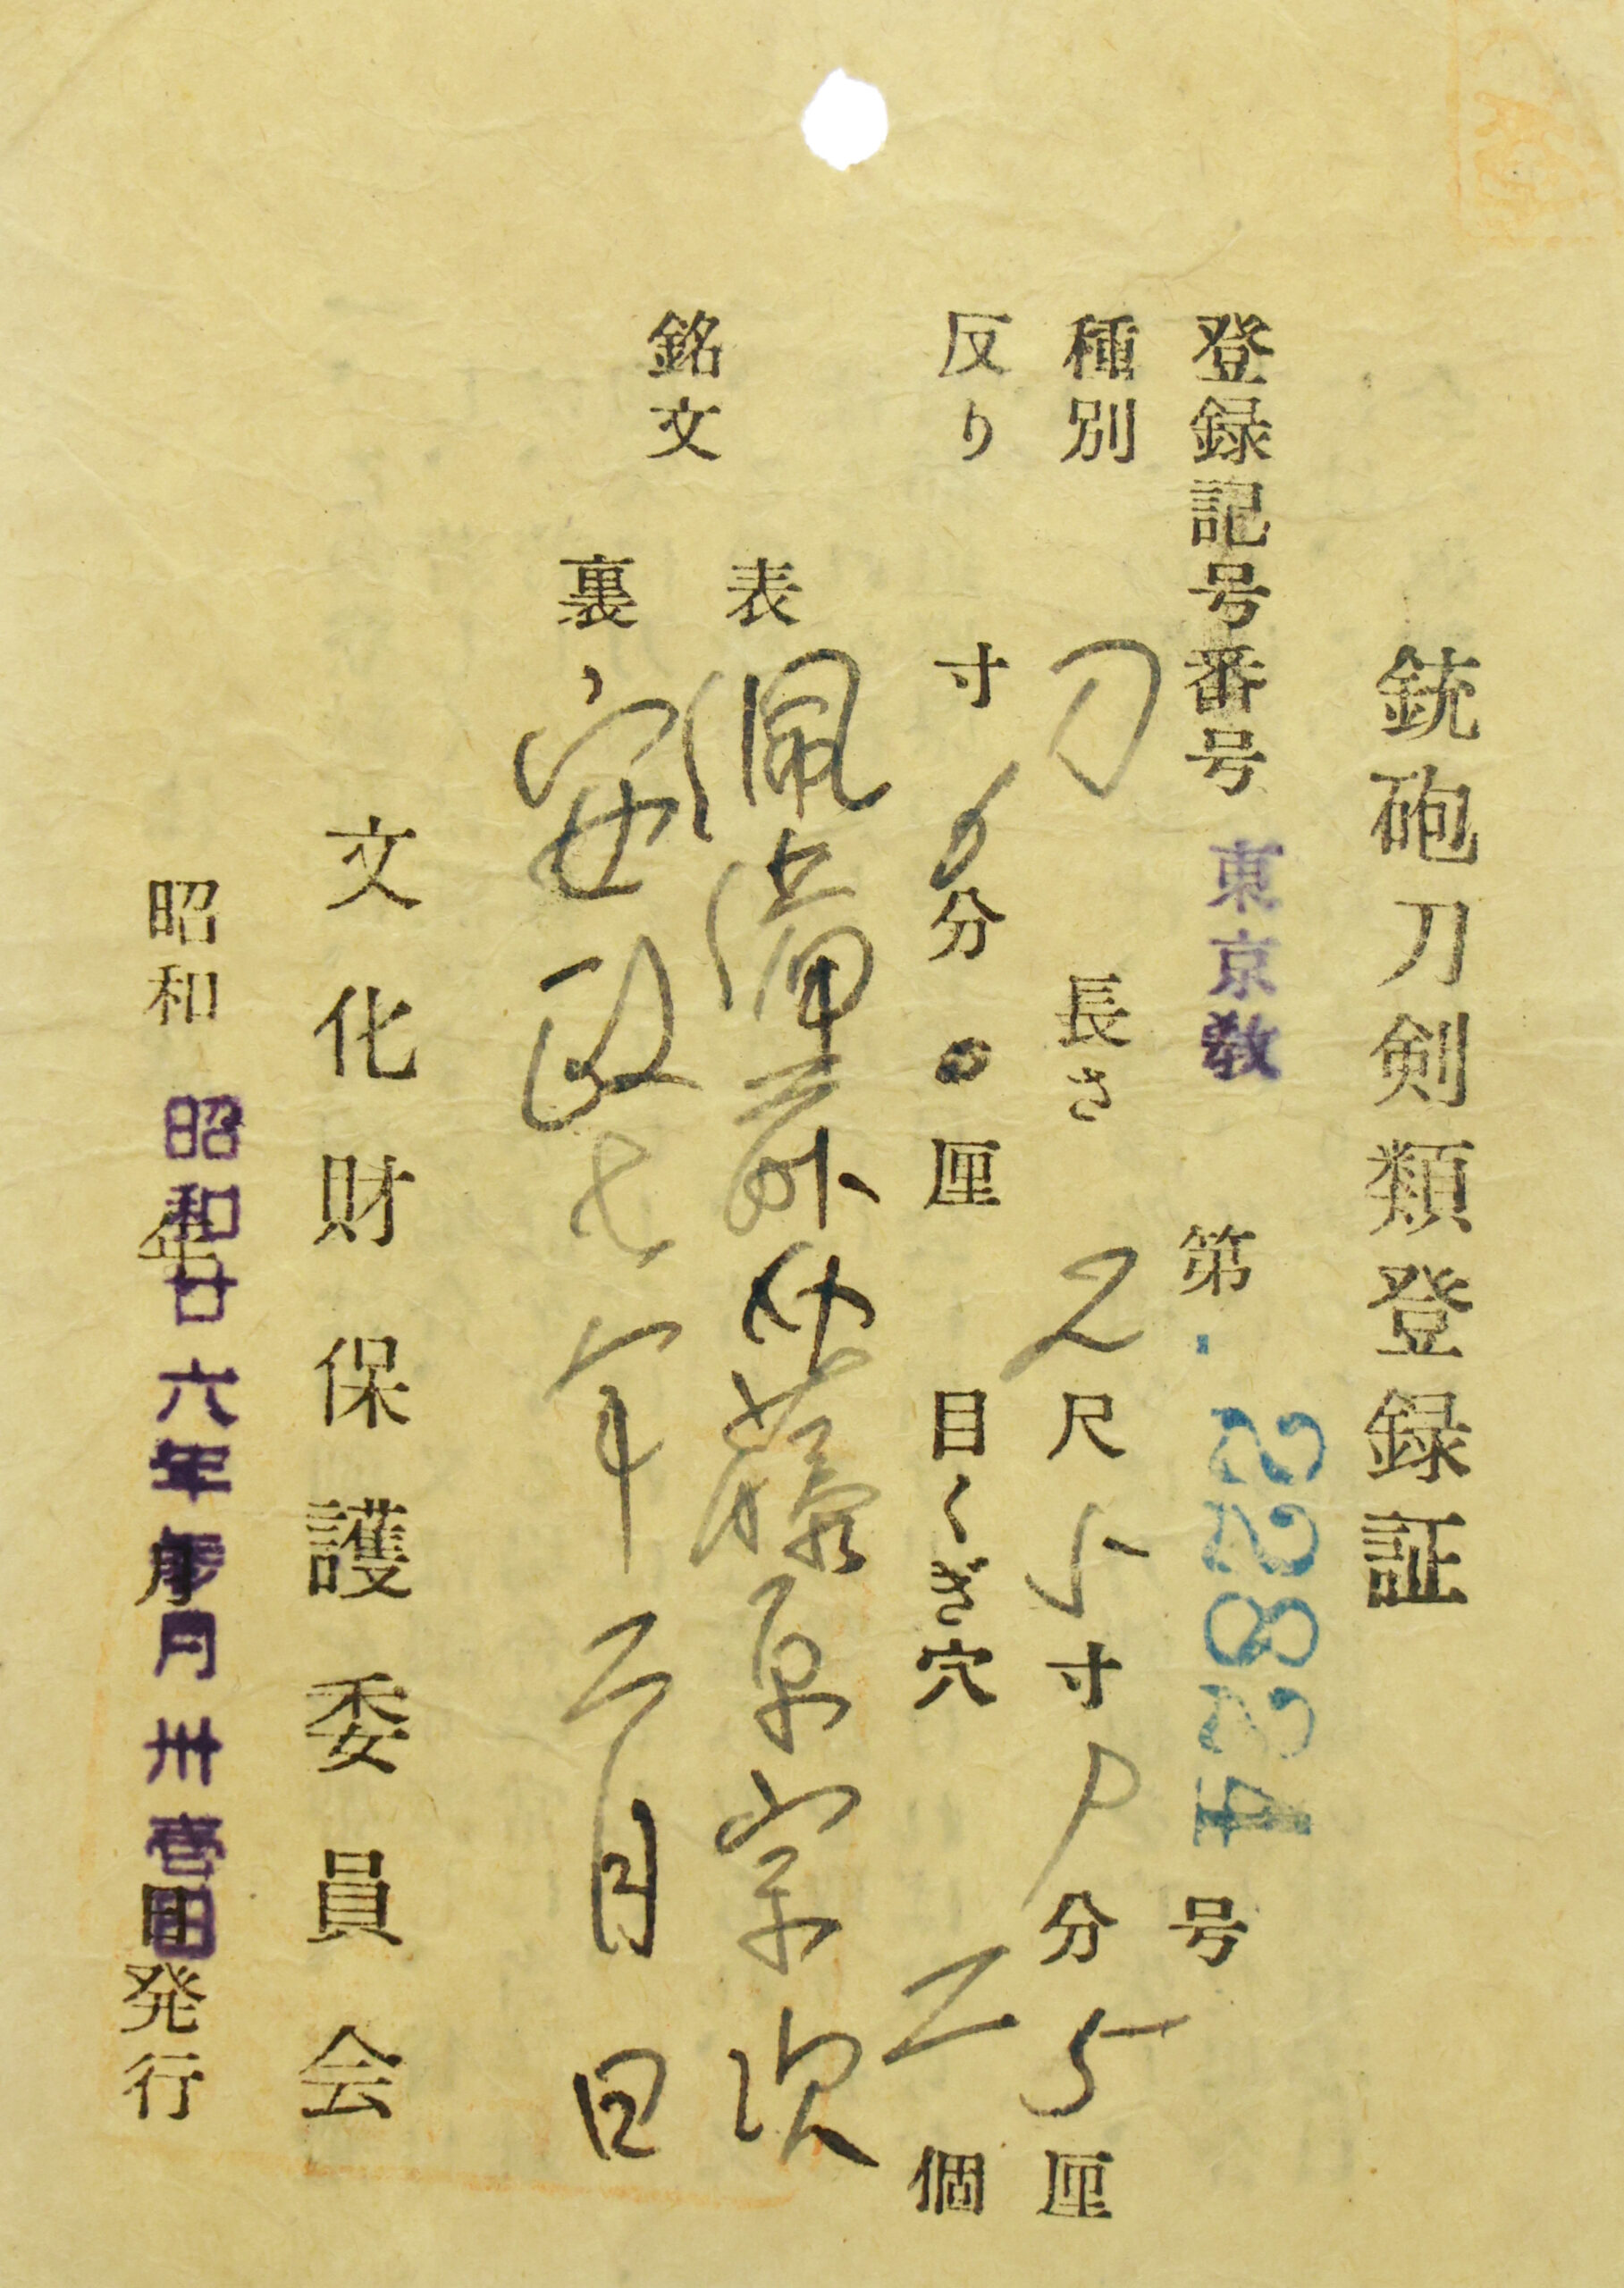 銃砲刀剣類登録証
登録記号番号 東京教 第 22824 号
種別 刀 長さ 2尺 寸 分5厘
反り 寸6分0厘 目くぎ穴 二個
銘文
表 佩備前介藤原宗次
裏 安政七年二月日
文化財保護委員会
昭和 昭和廿六年参月卅壹日 年 月 日発行